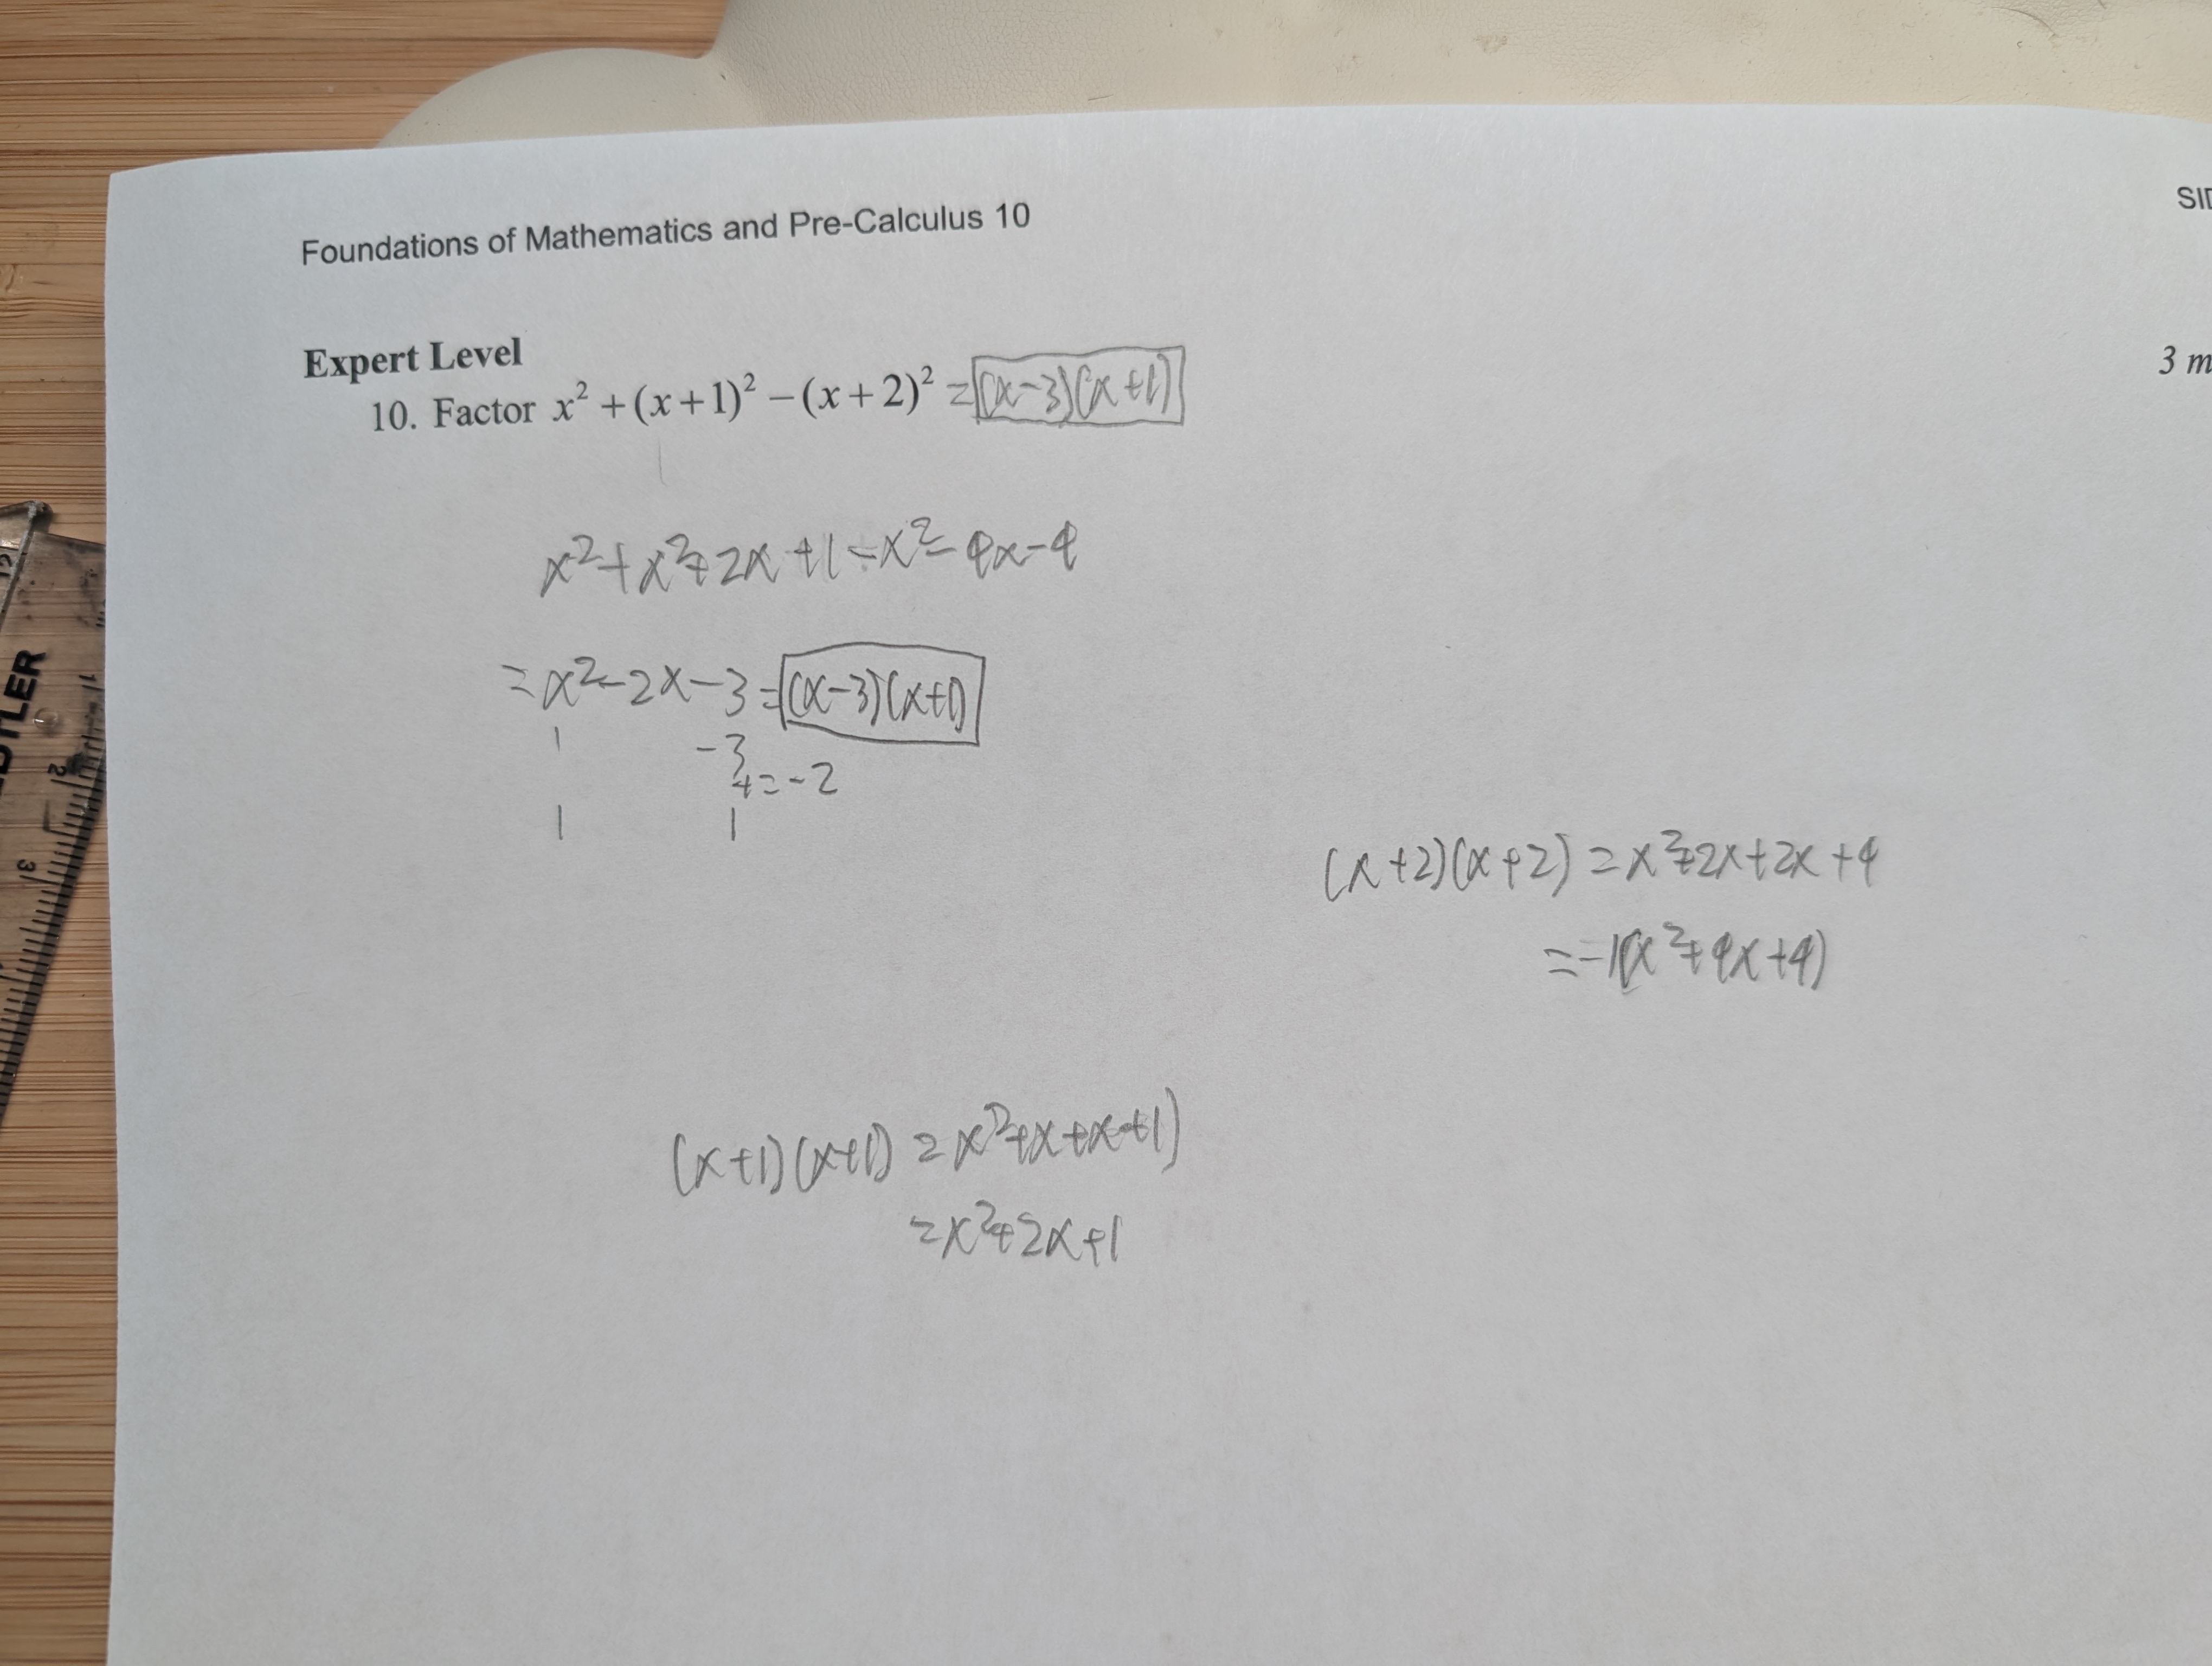 Foundations of Mathematics and Pre-Calculus 10
Expert Level
3 m
10. Factor x² + (x+1)² − (x+2)² = (x−3)(x+1)
x²+x²+2x+1−x²−4x−4
= x²−2x−3 = (x−3)(x+1)
1 −3
+=−2
1 1
(x+2)(x+2) = x²+2x+2x+4
= −1(x²+4x+4)
(x+1)(x+1) = x²+x+x+1)
= x²+2x+1
12
1
2
3